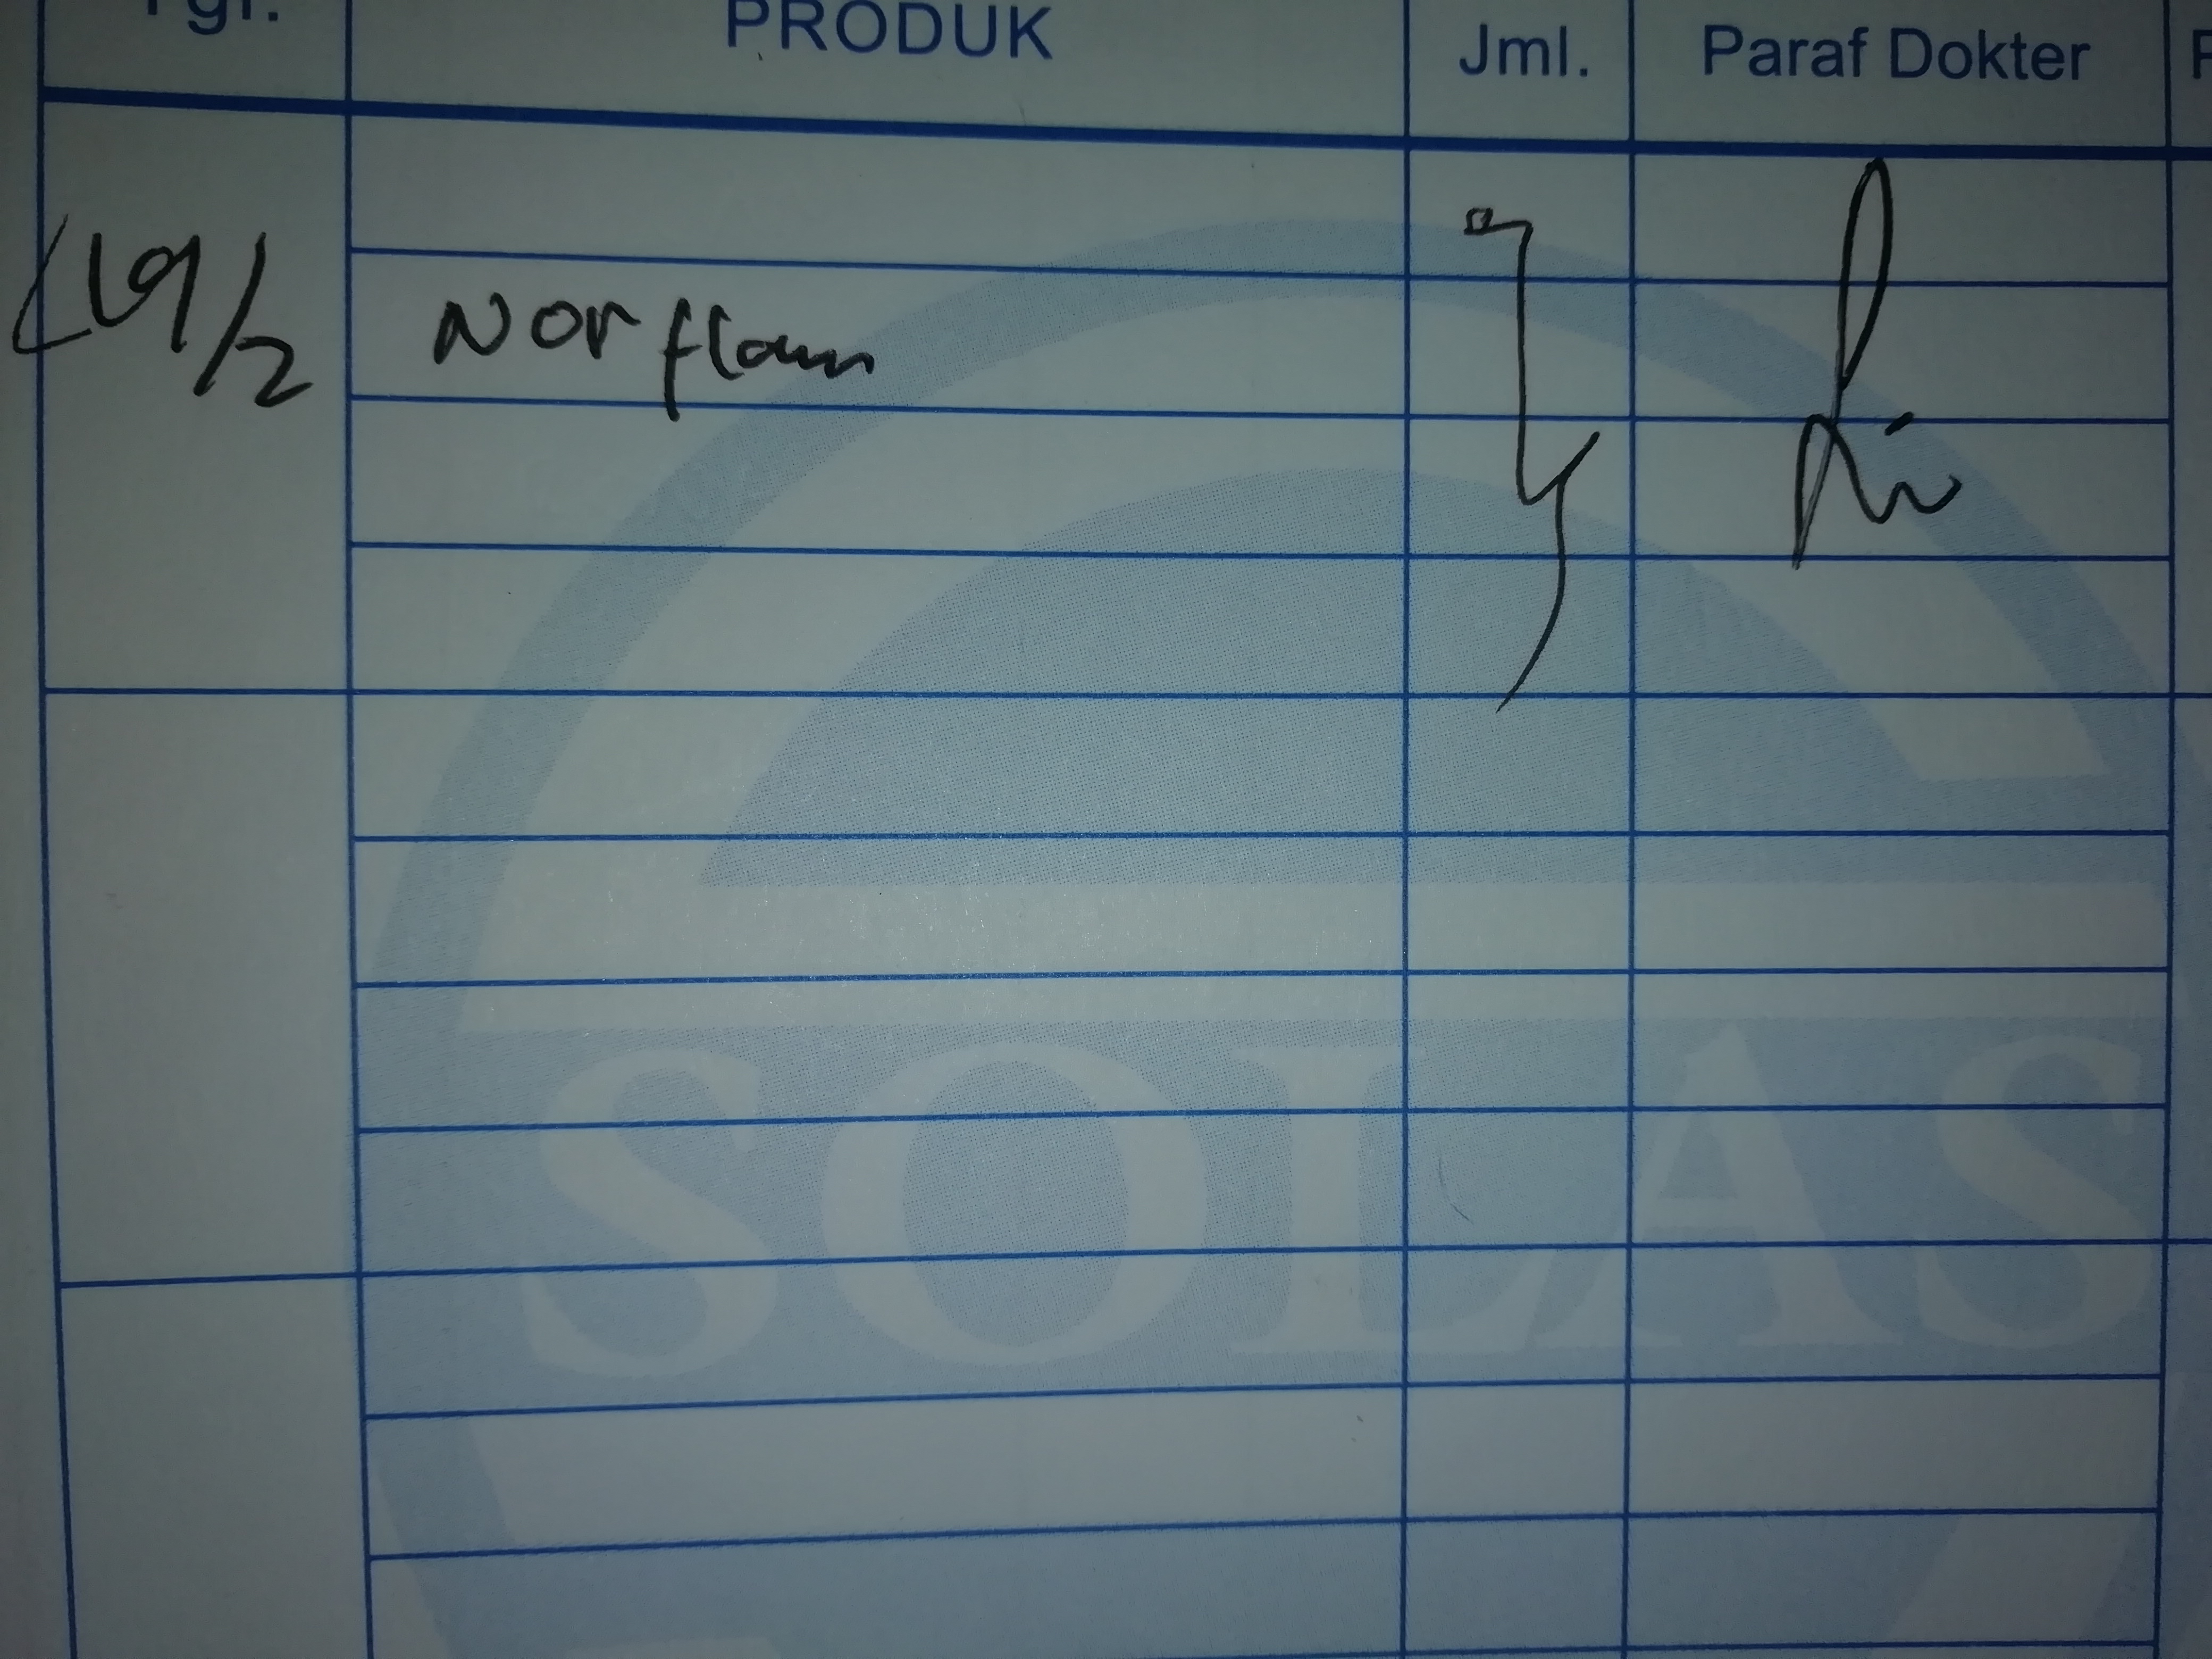 Tgl. PRODUK Jml. Paraf Dokter
19/2 Norflam
SOLAS